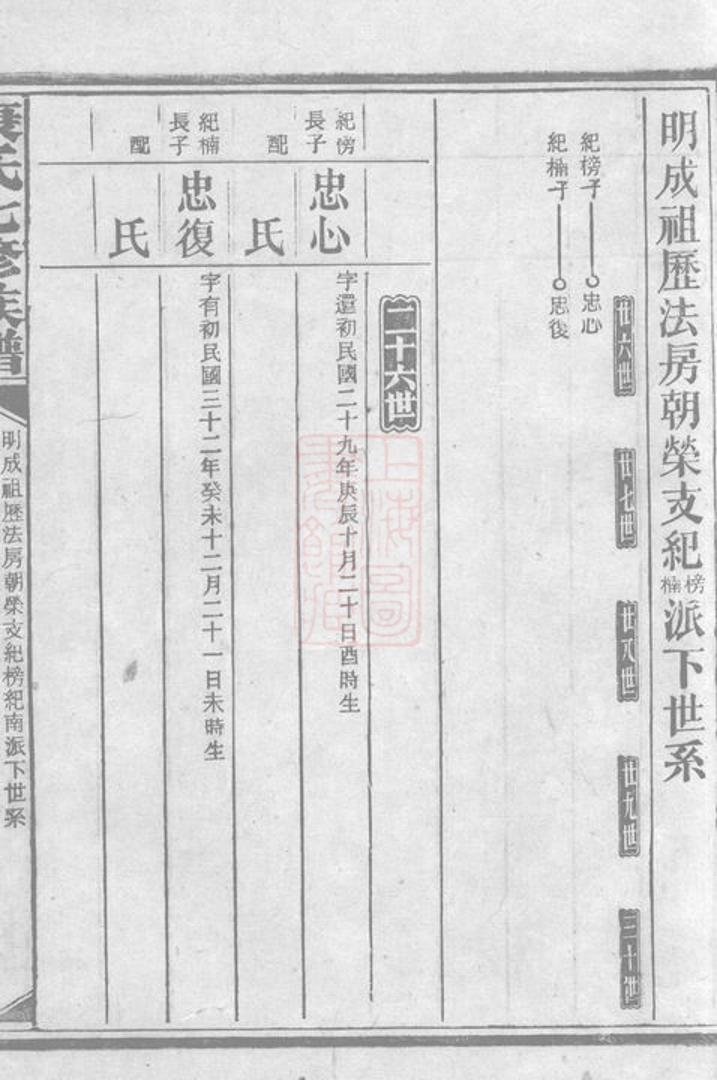 明成祖歷法房朝榮支紀榜楠派下世系
廿六世
廿七世
廿八世
廿九世
三十世
紀榜子 忠心
紀楠子 忠復
二十六世
紀榜長子
忠心
字還初民國二十九年庚辰十月二十日酉時生
配
氏
紀楠長子
忠復
字有初民國三十二年癸未十二月二十一日未時生
配
氏
氏七修族譜
明成祖歷法房朝榮支紀榜紀南派下世系